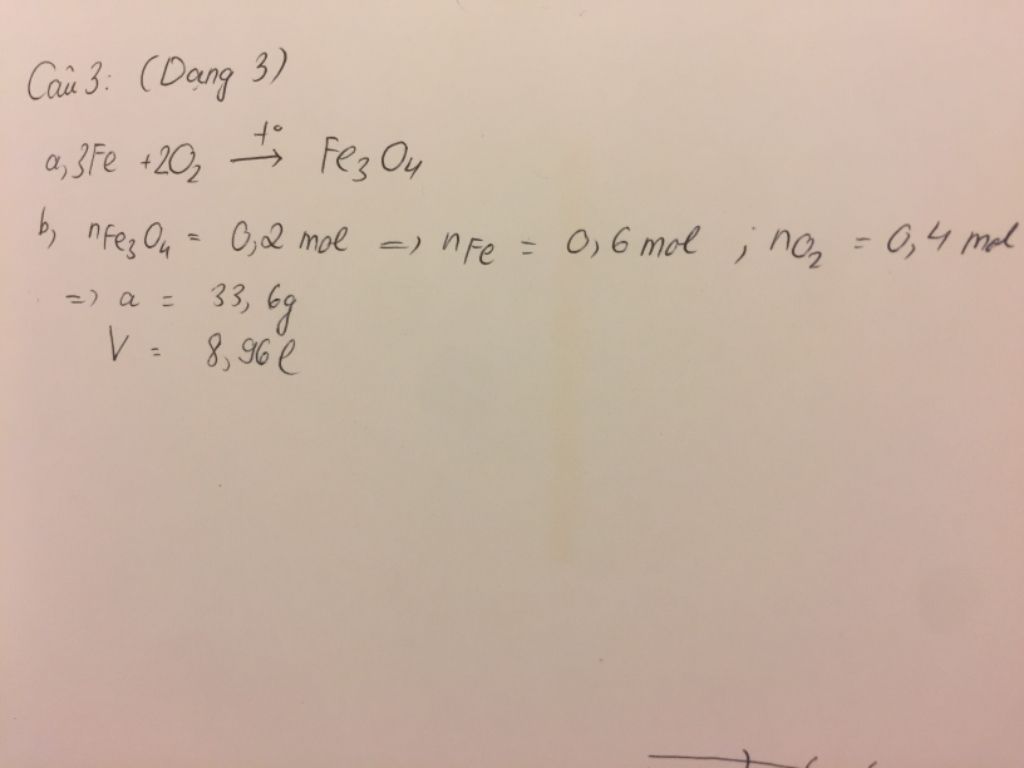 Câu 3: (Dạng 3)
a, 3Fe + 2O₂ →^{t°} Fe₃O₄
b, nFe₃O₄ = 0,2 mol => nFe = 0,6 mol ; nO₂ = 0,4 mol
=> a = 33,6g
V = 8,96l